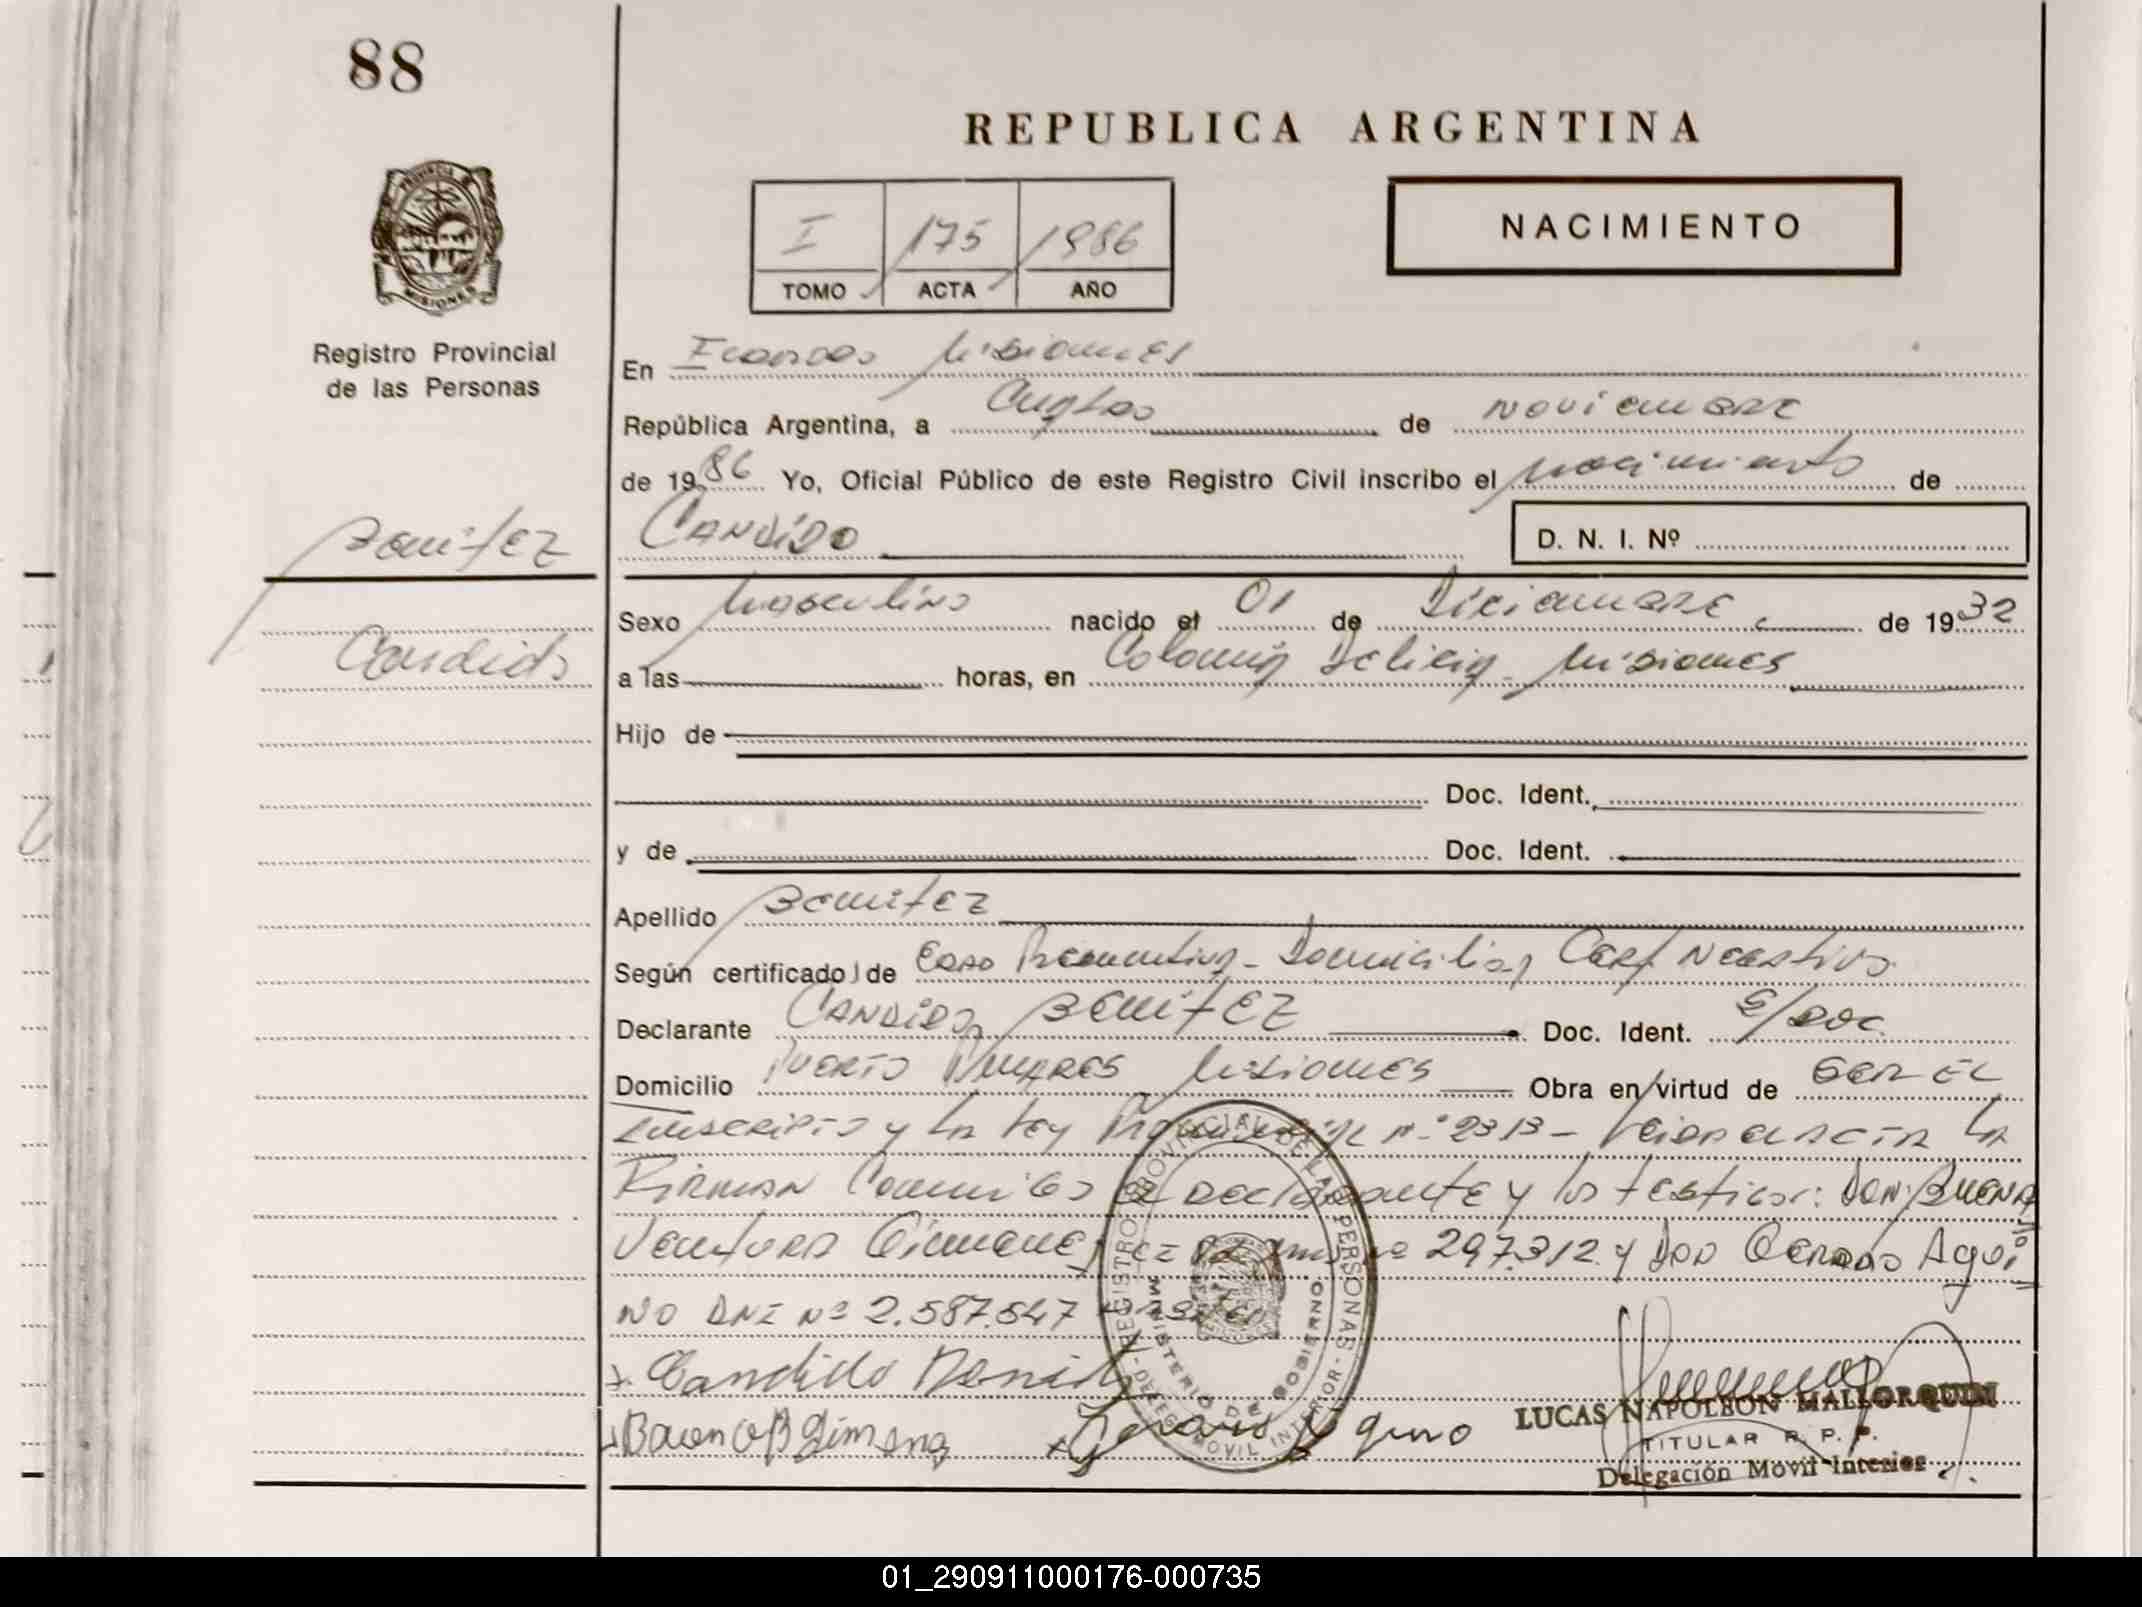 88
REPUBLICA ARGENTINA
NACIMIENTO
I 175 1986
TOMO ACTA AÑO
PROVINCIA DE
MISIONES
Registro Provincial
de las Personas
En Misiones
República Argentina, a de noviembre
de 1986 Yo, Oficial Público de este Registro Civil inscribo el nacimiento de
Benitez
CANDIDO
D. N. I. Nº
Sexo Masculino nacido el 01 de Diciembre de 1932
Candido
a las horas, en Colonia Delicia Misiones
Hijo de
Doc. Ident.
y de Doc. Ident.
Apellido Benitez
Según certificado de Domiciliar Cert Negativo
Declarante CANDIDO BENITEZ Doc. Ident. S/DOC.
Domicilio PUERTO Misiones Obra en virtud de SER EL
Inscripto y La Ley Provincial nº 2313 - Acta
Firman Conmigo el Declarante y los testigos: DON: BUENA
Ventura Gimenez nº 297.312 y DON GERARDO Aqui
NO DNI Nº 2.587.547
Candido Benitez
Gerardo Aquino
REGISTRO PROVINCIAL DE LAS PERSONAS
MINISTERIO DE GOBIERNO
DELEG. MOVIL INTERIOR
LUCAS NAPOLEON MALLORQUIN
TITULAR R. P. P.
Delegación Movil Interior
01_290911000176-000735